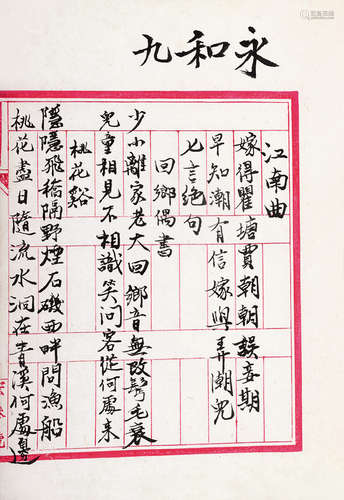 永和九
江南曲
嫁得瞿塘賈朝朝誤妾期
早知潮有信嫁與弄潮兒
七言絕句
回鄉偶書
少小離家老大回鄉音無改鬢毛衰
兒童相見不相識笑問客從何處来
桃花谿
隱隱飛橋隔野煙石磯西畔問漁船
桃花盡日隨流水洞在青溪何處邊